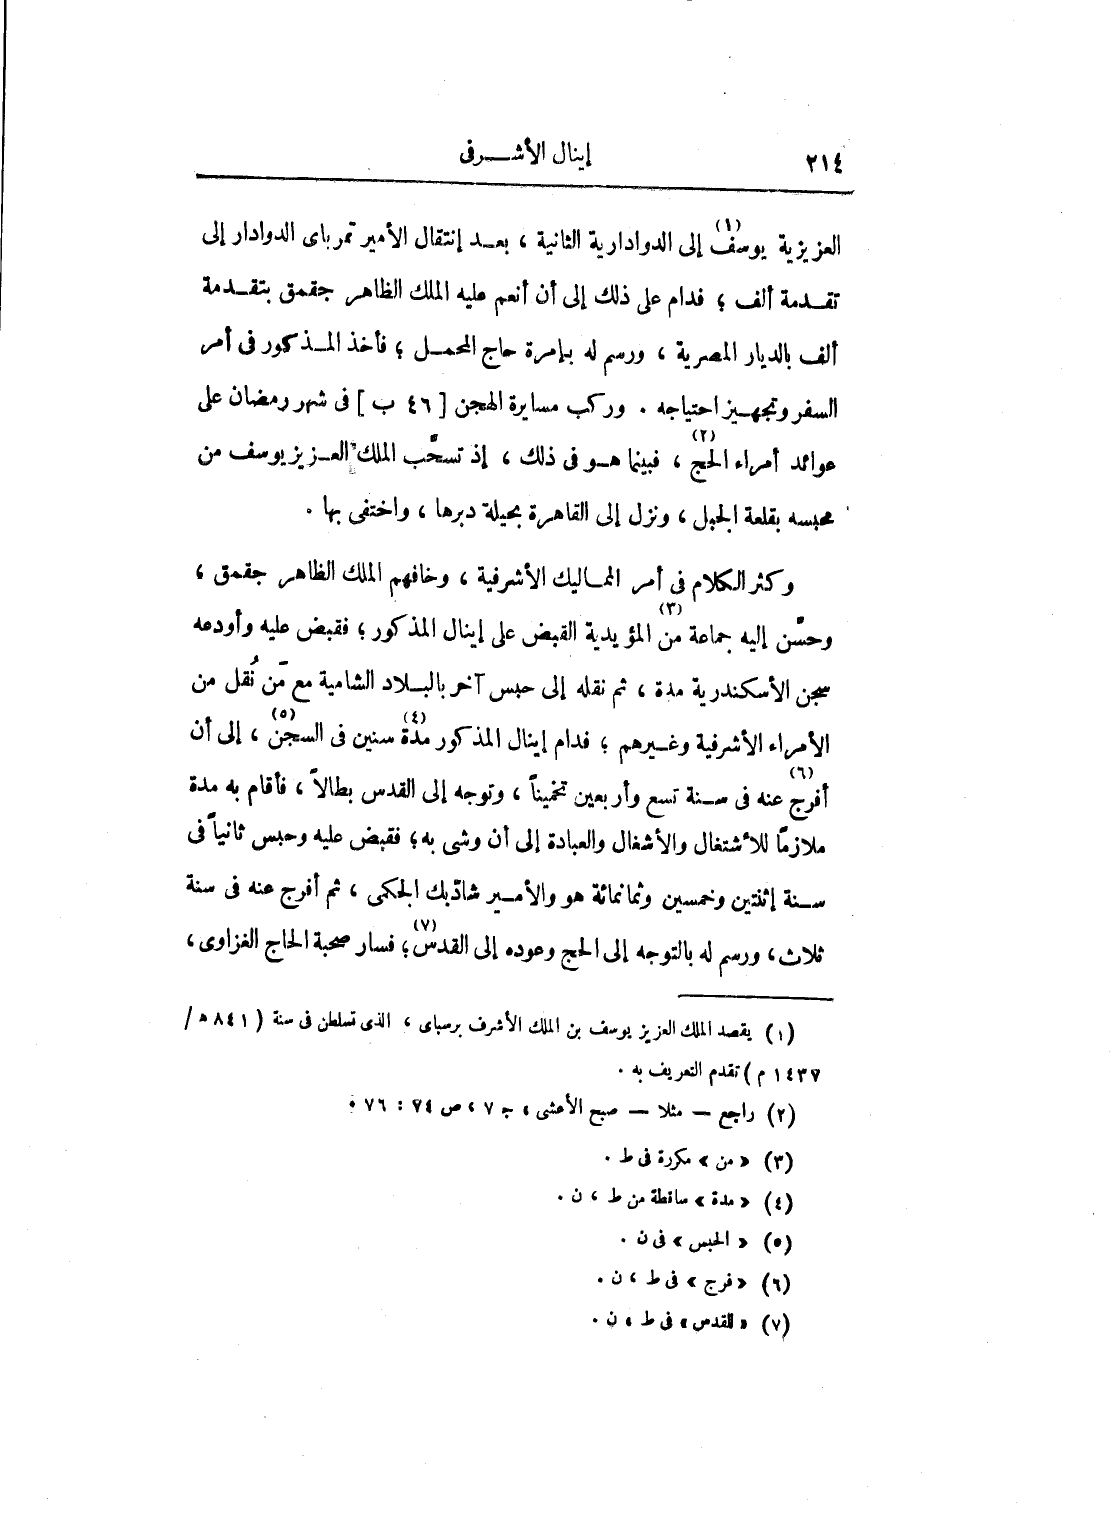 ٢١٤
إينال الأشـــرفى
العزيزية يوسف(١) إلى الدوادارية الثانية ، بعـد إنتقال الأمير تمرباى الدوادار إلى
تقـدمة ألف ؛ فدام على ذلك إلى أن أنعم عليه الملك الظاهر جقمق بتقـدمة
ألف بالديار المصرية ، ورسم له بإمرة حاج المحمـل ؛ فأخذ المـذكور فى أمر
السفر وتجهـيز احتياجه . وركب مسايرة الهجن [ ٤٦ ب ] فى شهر رمضان على
عوائد أمراء الحج(٢) ، فبينما هـو فى ذلك ، إذ تسحَّب الملك العـزيز يوسف من
محبسه بقلعة الجبل ، ونزل إلى القاهرة بحيلة دبرها ، واختفى بها .
وكثر الكلام فى أمر المماليك الأشرفية ، وخافهم الملك الظاهر جقمق ،
وحسَّن إليه جماعة من(٣) المؤيدية القبض على إينال المذكور ؛ فقبض عليه وأودعه
سجن الأسكندرية مدة ، ثم نقله إلى حبس آخر بالبـلاد الشامية مع مَن نُقل من
الأمراء الأشرفية وغـيرهم ؛ فدام إينال المذكور مدة(٤) سنين فى السجن(٥) ، إلى أن
أفرج(٦) عنه فى سـنة تسع وأربعين تخميناً ، وتوجه إلى القدس بطالاً ، فأقام به مدة
ملازمًا للأشتغال والأشغال والعبادة إلى أن وشى به ؛ فقبض عليه وحبس ثانياً فى
سـنة إثنتين وخمسين وثمانمائة هو والأمـير شاذبك الجكمى ، ثم أفرج عنه فى سنة
ثلاث ، ورسم له بالتوجه إلى الحج وعوده إلى القدس(٧) ؛ فسار صحبة الحاج الغزاوى ،
(١) يقصد الملك العزيز يوسف بن الملك الأشرف برسباى ، الذى تسلطن فى سنة ( ٨٤١ هـ /
١٤٣٧ م ) تقدم التعريف به .
(٢) راجع — مثلا — صبح الأعشى ، جـ ٧ ، ص ٧٤ : ٧٦ .
(٣) « من » مكررة فى ط .
(٤) « مدة » ساقطة من ط ، ن .
(٥) « الحبس » فى ن .
(٦) « فرج » فى ط ، ن .
(٧) « للقدس » فى ط ، ن .